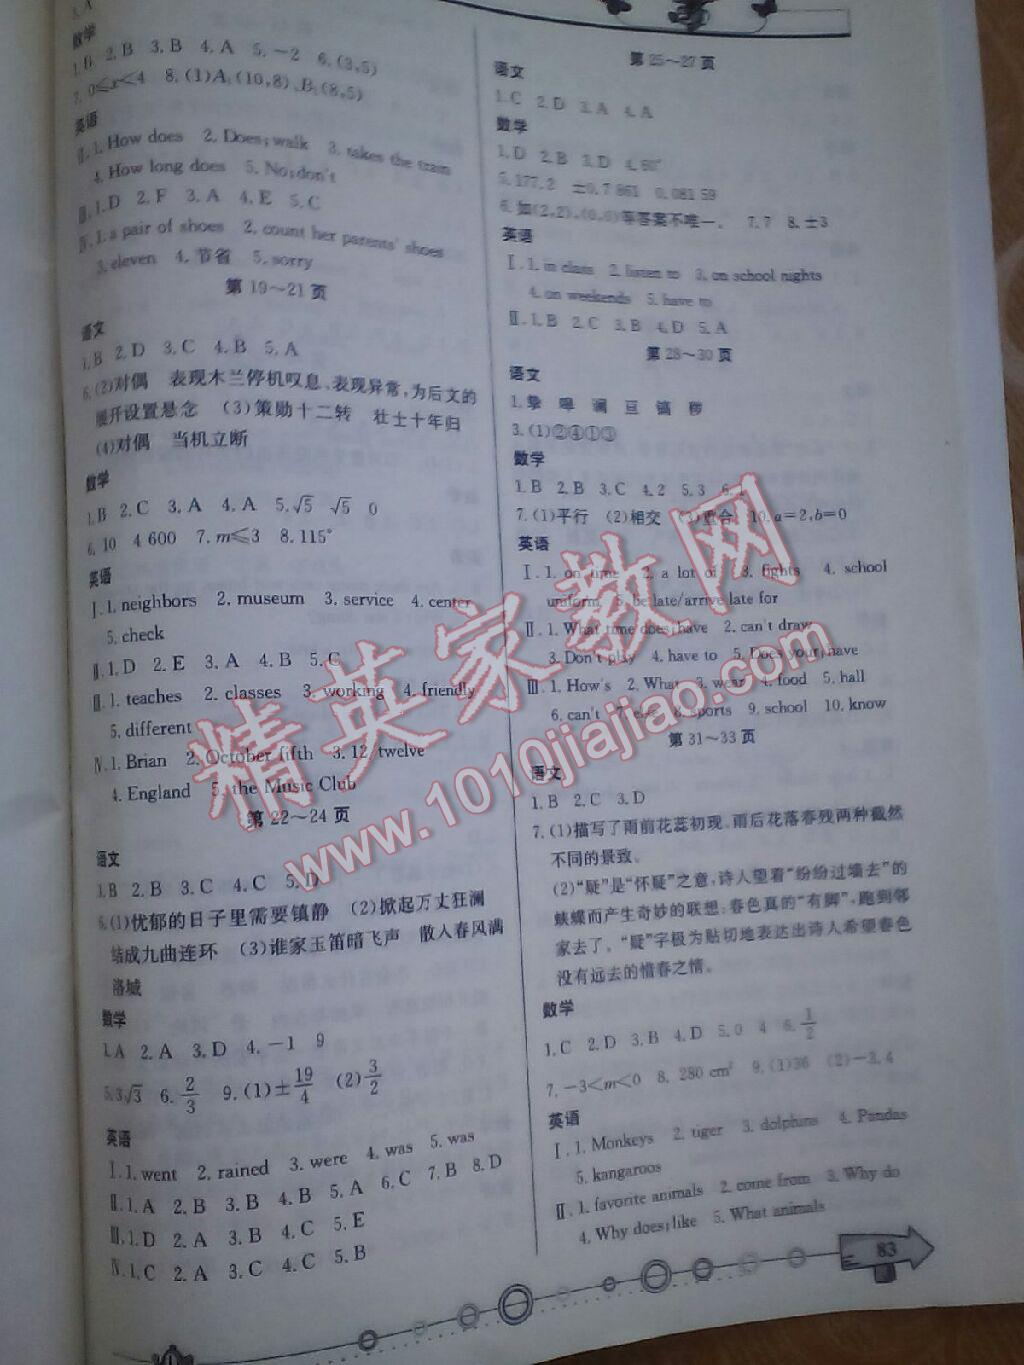 3. A
数学
1. B 2. B 3. B 4. A 5. －2 6. (3,5)
7. 0≤x≤4 8. (1)A₁(10,8)、B₁(8,5)
英语
Ⅱ. 1. How does 2. Does;walk 3. takes the train
4. How long does 5. No;don't
Ⅲ. 1. D 2. F 3. A 4. E 5. C
Ⅳ. 1. a pair of shoes 2. count her parents' shoes
3. eleven 4. 节省 5. sorry
第 19～21 页
语文
1. B 2. D 3. C 4. B 5. A
6. (2)对偶 表现木兰停机叹息、表现异常,为后文的
展开设置悬念 (3)策勋十二转 壮士十年归
(4)对偶 当机立断
数学
1. B 2. C 3. A 4. A 5. √5 √5 0
6. 10 4 600 7. m≤3 8. 115°
英语
Ⅰ. 1. neighbors 2. museum 3. service 4. center
5. check
Ⅱ. 1. D 2. E 3. A 4. B 5. C
Ⅲ. 1. teaches 2. classes 3. working 4. friendly
5. different
Ⅳ. 1. Brian 2. October fifth 3. 12/twelve
4. England 5. the Music Club
第 22～24 页
语文
1. B 2. B 3. C 4. C 5. D
6. (1)忧郁的日子里需要镇静 (2)掀起万丈狂澜
结成九曲连环 (3)谁家玉笛暗飞声 散入春风满
洛城
数学
1. A 2. A 3. D 4. －1 9
5. 3√3 6. 2/3 9. (1)±19/4 (2)3/2
英语
Ⅰ. 1. went 2. rained 3. were 4. was 5. was
Ⅱ. 1. A 2. B 3. B 4. B 5. A 6. C 7. B 8. D
Ⅲ. 1. D 2. A 3. B 4. C 5. E
Ⅳ. 1. C 2. A 3. C 4. C 5. B
第 25～27 页
语文
1. C 2. D 3. A 4. A
数学
1. D 2. B 3. D 4. 60°
5. 177.2 ±0.7 861 0.081 59
6. 如(2,2),(0,0)等答案不唯一. 7. 7 8. ±3
英语
Ⅰ. 1. in class 2. listen to 3. on school nights
4. on weekends 5. have to
Ⅱ. 1. B 2. C 3. B 4. D 5. A
第 28～30 页
语文
1. 挚 嗥 澜 亘 镐 秽
3. (1)②④①③
数学
1. B 2. B 3. C 4. 2 5. 3 6.
7. (1)平行 (2)相交 (3)重合 10. a＝2,b＝0
英语
Ⅰ. 1. on time 2. a lot of 3. fights 4. school
uniform 5. be late/arrive late for
Ⅱ. 1. What time does;have 2. can't draw
3. Don't play 4. have to 5. Does your;have
Ⅲ. 1. How's 2. What 3. wear 4. food 5. hall
6. can't 7. else 8. sports 9. school 10. know
第 31～33 页
语文
1. B 2. C 3. D
7. (1)描写了雨前花蕊初现、雨后花落春残两种截然
不同的景致。
(2)“疑”是“怀疑”之意,诗人望着“纷纷过墙去”的
蛱蝶而产生奇妙的联想:春色真的“有脚”,跑到邻
家去了。“疑”字极为贴切地表达出诗人希望春色
没有远去的惜春之情。
数学
1. C 2. D 3. B 4. D 5. 0 4 6. 1/2
7. －3＜m＜0 8. 280 cm² 9. (1)36 (2)－3,4
英语
Ⅰ. 1. Monkeys 2. tiger 3. dolphins 4. Pandas
5. kangaroos
Ⅱ. 1. favorite animals 2. come from 3. Why do
4. Why does;like 5. What animals
83
精英家教网
www.1010jiajiao.com